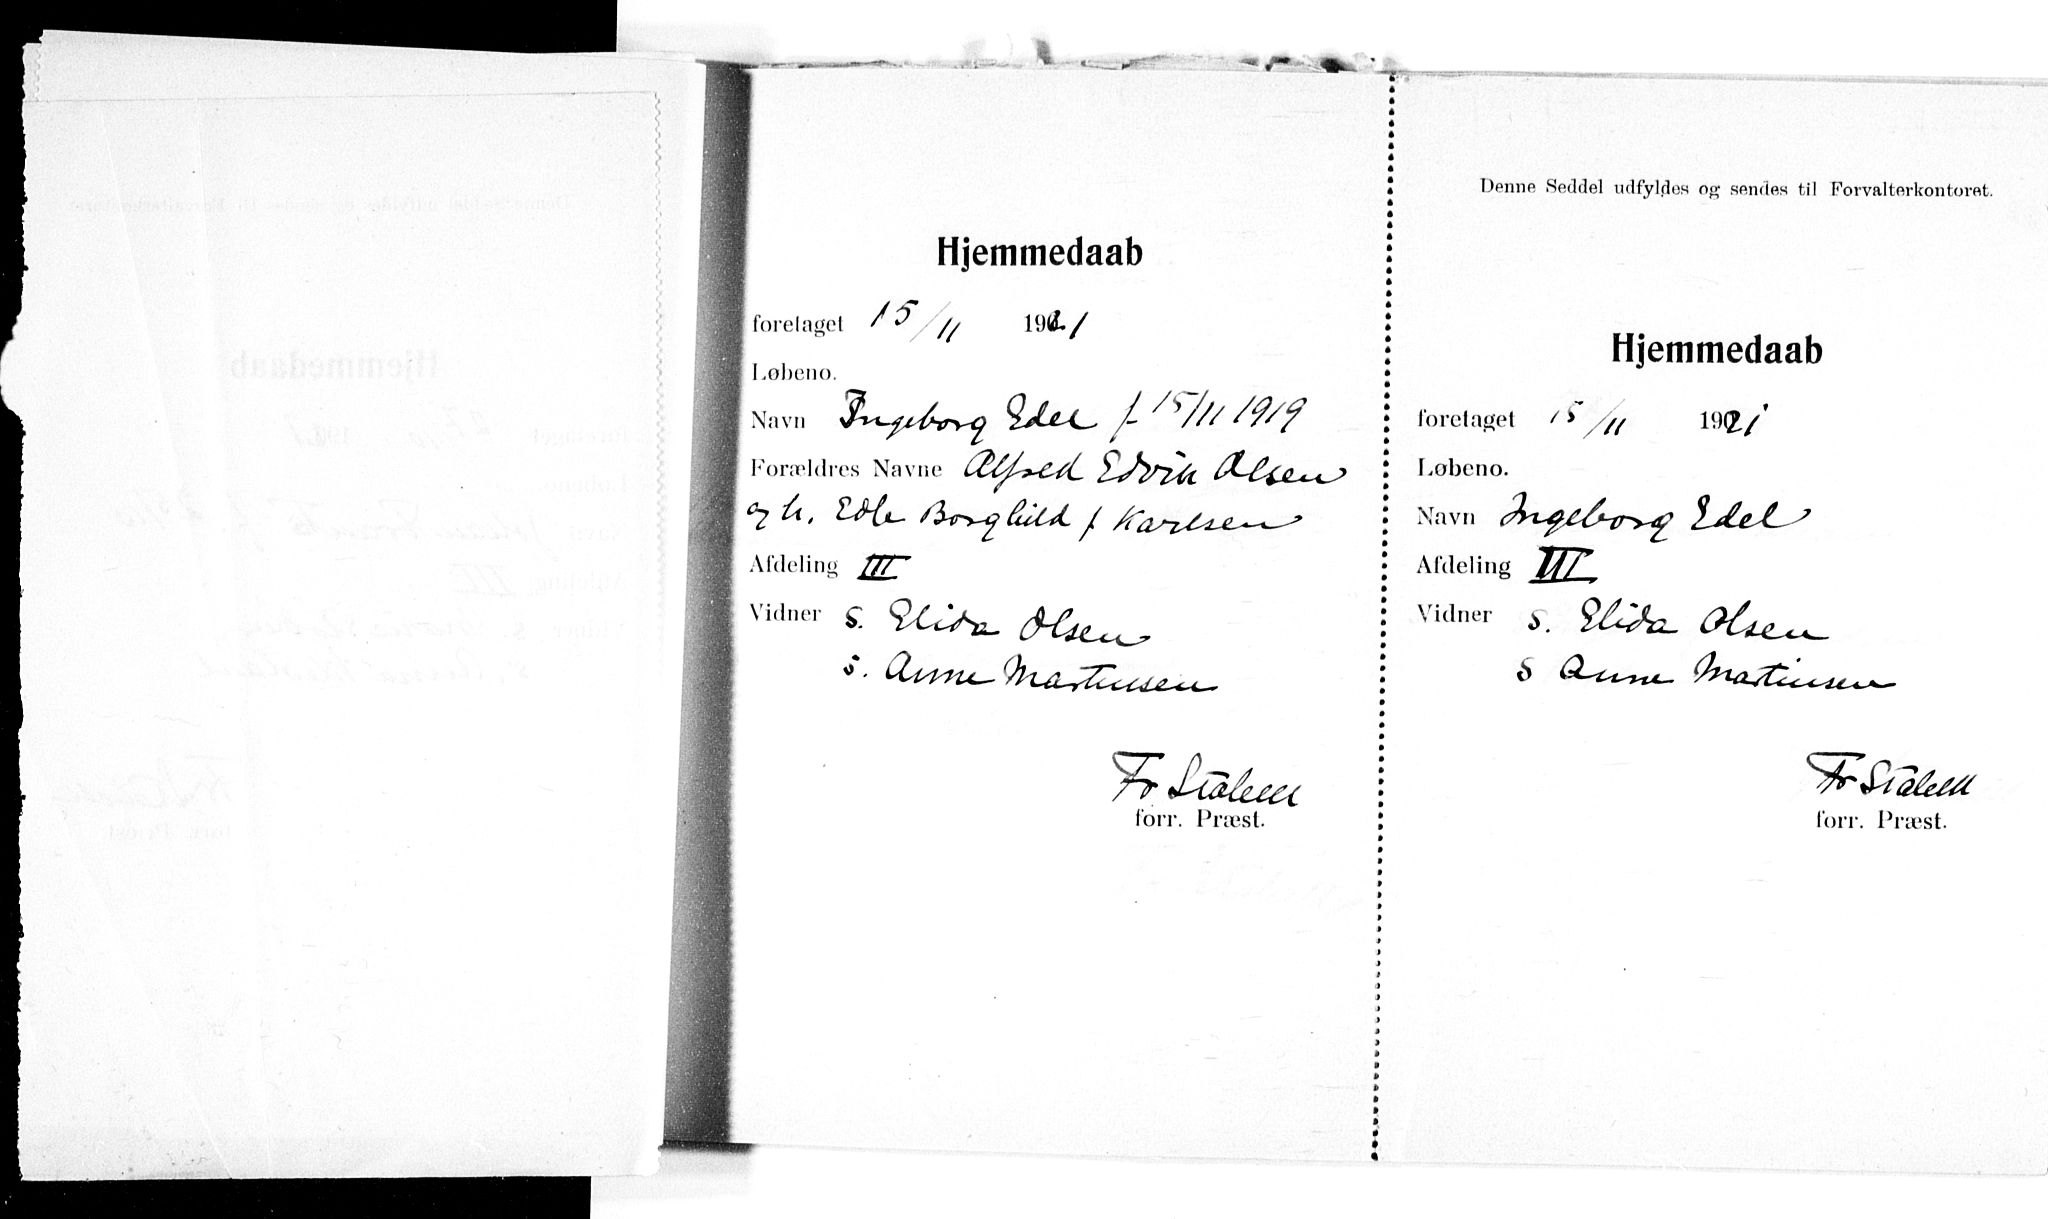 Hjemmedaab
foretaget 15/11 1921
Løbeno.
Navn Ingeborg Edel f 15/11 1919
Forældres Navne Alfred Edvin Olsen
og h. Edle Borghild f Karlsen
Afdeling III
Vidner S. Elida Olsen
S. Anne Martinsen
Fr Stålem
forr. Præst.
Denne Seddel udfyldes og sendes til Forvalterkontoret.
Hjemmedaab
foretaget 15/11 1921
Løbeno.
Navn Ingeborg Edel
Afdeling III
Vidner S. Elida Olsen
S Anne Martinsen
Fr Stålem
forr. Præst.